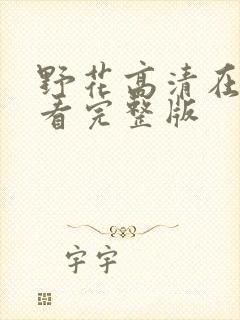 野花高清在
看完整版
字宇